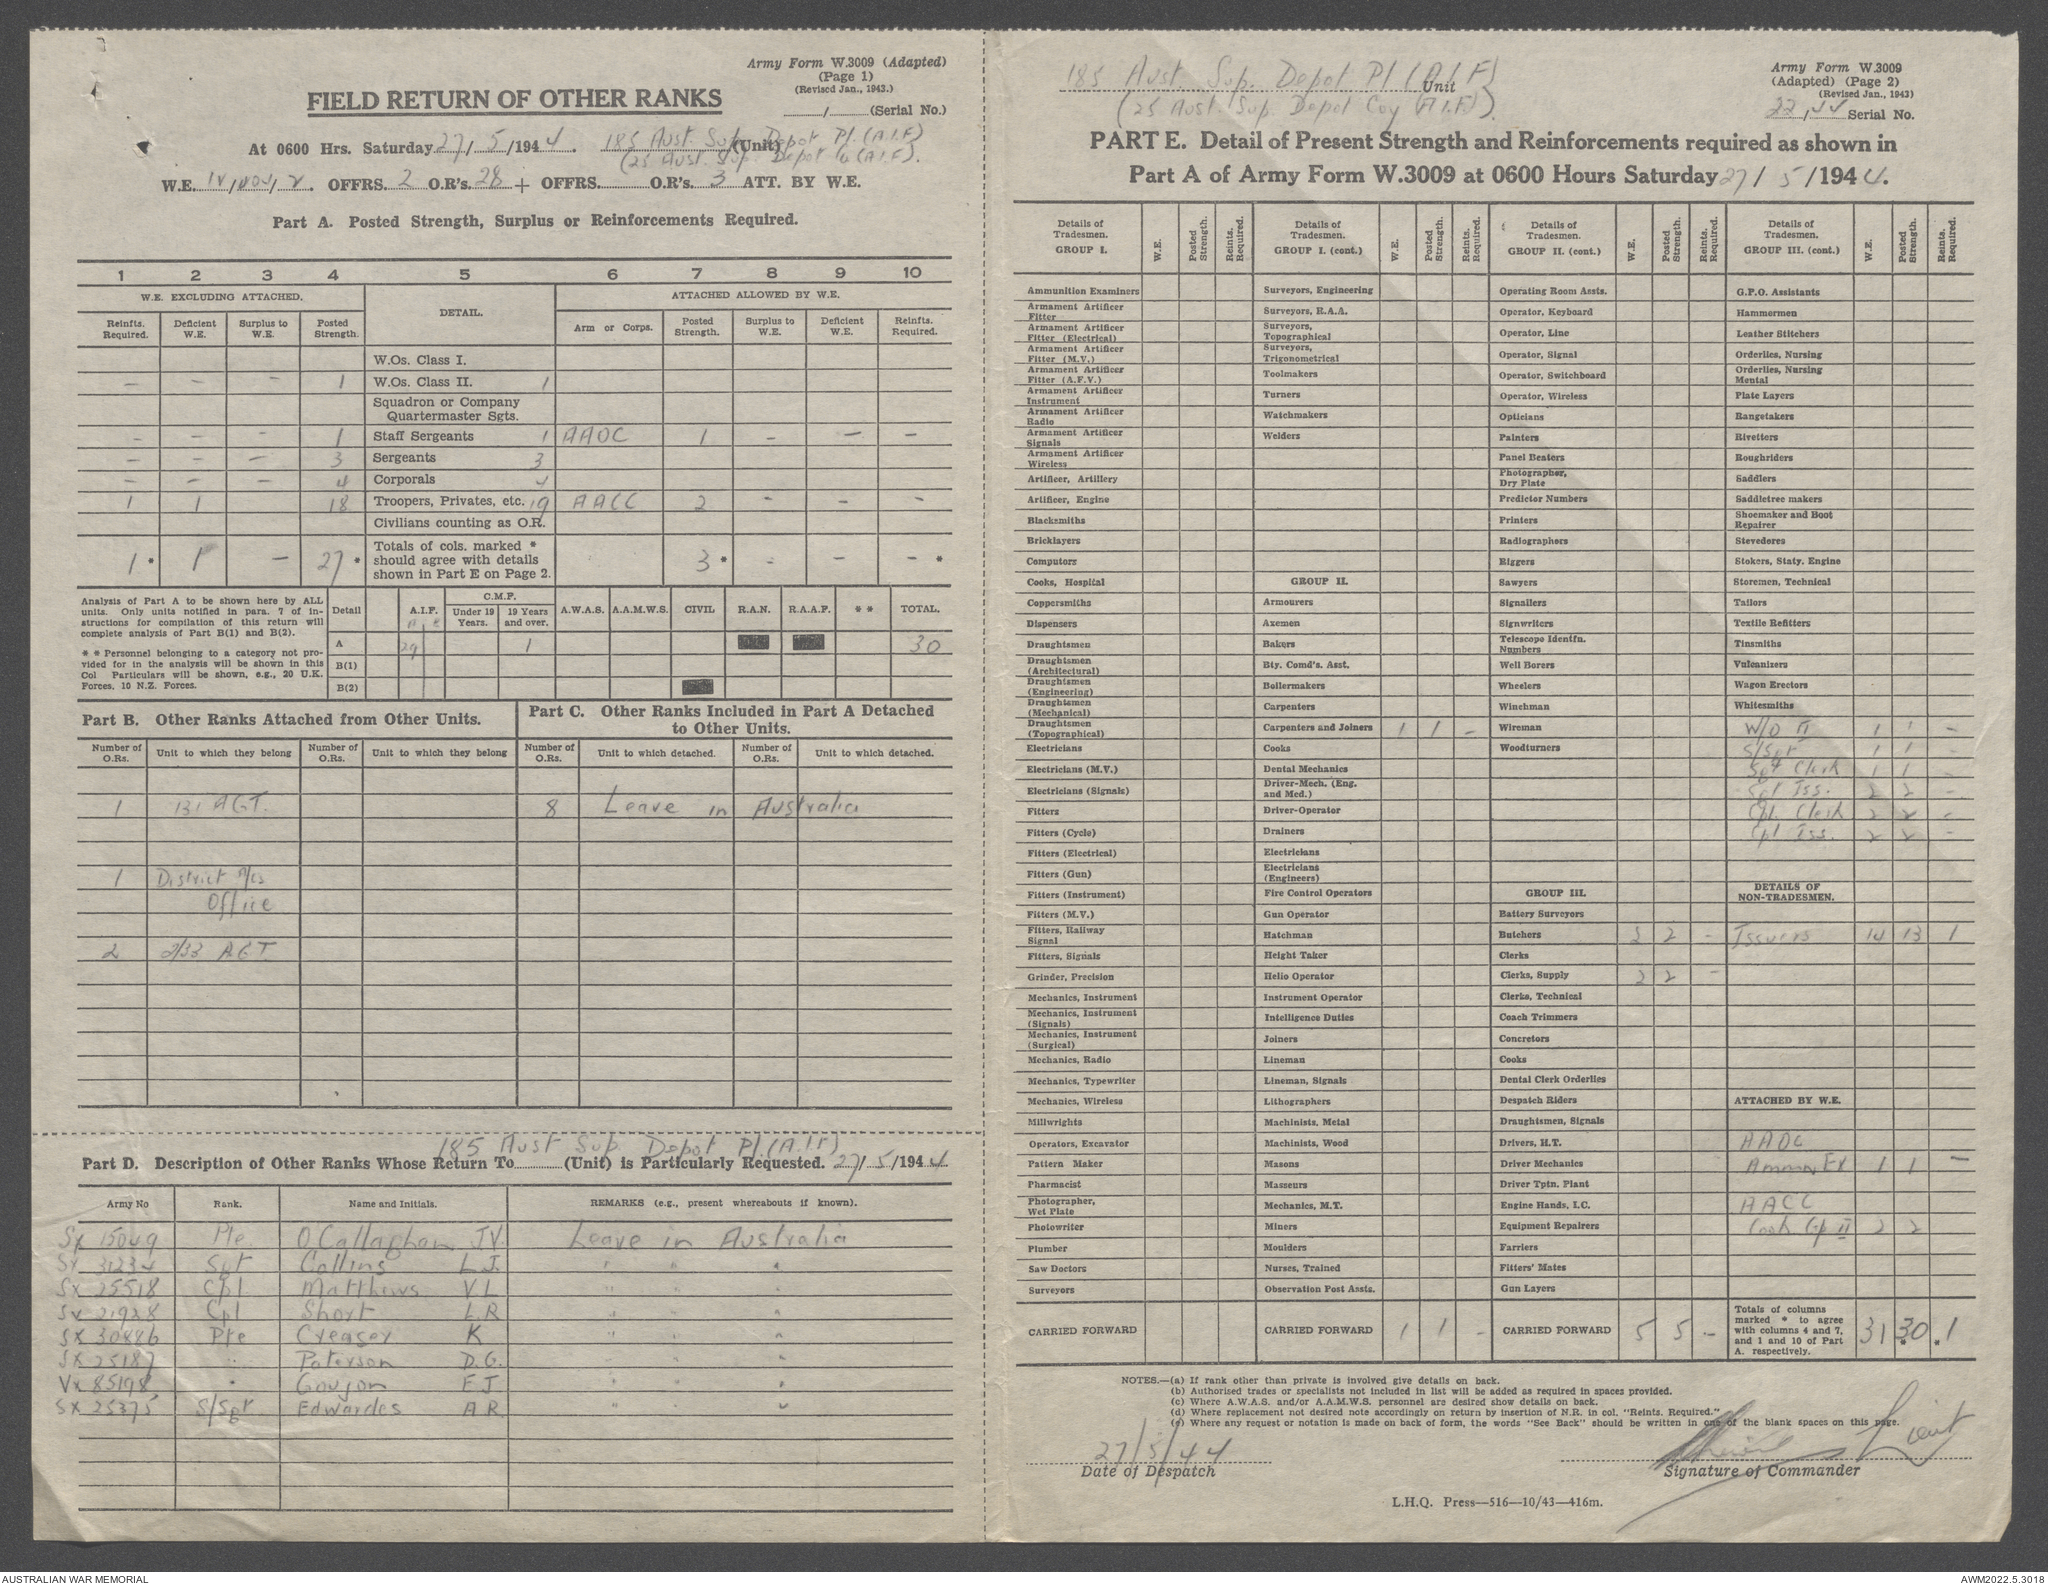 Army Form W.3009 (Adapted)
(Page 1)
(Revised Jan., 1943.)
/ (Serial No.)
FIELD RETURN OF OTHER RANKS
At 0600 Hrs. Saturday 27/5/1944. 185 Aust. Sup. Depot Pl. (A.I.F) (Unit)
(25 Aust. Sup. Depot Co (A.I.F).
W.E. IV/ /2. OFFRS. 2 O.R's. 28 + OFFRS. O.R's. 3 ATT. BY W.E.
Part A. Posted Strength, Surplus or Reinforcements Required.
1 2 3 4 5 6 7 8 9 10
W.E. EXCLUDING ATTACHED. DETAIL. ATTACHED ALLOWED BY W.E.
Reinfts. Required. Deficient W.E. Surplus to W.E. Posted Strength. Arm or Corps. Posted Strength. Surplus to W.E. Deficient W.E. Reinfts. Required.
W.Os. Class I.
- - - 1 W.Os. Class II. 1
Squadron or Company Quartermaster Sgts.
- - - 1 Staff Sergeants 1 AAOC 1 - - -
- - - 3 Sergeants 3
- - - 4 Corporals 4
1 1 18 Troopers, Privates, etc. 19 AACC 2 - - -
Civilians counting as O.R.
1 * 1 - 27 * Totals of cols. marked * should agree with details shown in Part E on Page 2. 3 * - - - *
Analysis of Part A to be shown here by ALL units. Only units notified in para. 7 of instructions for compilation of this return will complete analysis of Part B(1) and B(2).
* * Personnel belonging to a category not provided for in the analysis will be shown in this Col Particulars will be shown, e.g., 20 U.K. Forces, 10 N.Z. Forces.
Detail A.I.F. C.M.F. Under 19 Years. 19 Years and over. A.W.A.S. A.A.M.W.S. CIVIL R.A.N. R.A.A.F. * * TOTAL.
A 29 1 30
B(1)
B(2)
Part B. Other Ranks Attached from Other Units.
Part C. Other Ranks Included in Part A Detached to Other Units.
Number of O.Rs. Unit to which they belong Number of O.Rs. Unit to which they belong Number of O.Rs. Unit to which detached. Number of O.Rs. Unit to which detached.
1 131 AGT. 8 Leave in Australia
1 District
Office
2 2/33 AGT
185 Aust Sup. Depot Pl. (A.I.F)
Part D. Description of Other Ranks Whose Return To (Unit) is Particularly Requested. 27/5/1944.
Army No Rank. Name and Initials. REMARKS (e.g., present whereabouts if known).
Sx 15049 Pte O'Callaghan J.V. Leave in Australia
Sx 31234 Sgt Collins L.J. " " "
Sx 25518 Cpl Matthews V L " " "
Sx 21928 Cpl Short L.R " " "
SX 30886 Pte Creasey K " " "
SX 25187 " Paterson D.G. " " "
Vx 85198 " Goujon F J " " "
SX 25375 S/Sgt Edwardes A R " " "
185 Aust. Sup. Depot Pl (A.I.F) Unit
(25 Aust. Sup Depot Coy (A.I.F).
Army Form W.3009
(Adapted) (Page 2)
(Revised Jan., 1943)
22/44 Serial No.
PART E. Detail of Present Strength and Reinforcements required as shown in
Part A of Army Form W.3009 at 0600 Hours Saturday 27/5/1944.
Details of Tradesmen. GROUP I. W.E. Posted Strength. Reints. Required.
Ammunition Examiners
Armament Artificer Fitter
Armament Artificer Fitter (Electrical)
Armament Artificer Fitter (M.V.)
Armament Artificer Fitter (A.F.V.)
Armament Artificer Instrument
Armament Artificer Radio
Armament Artificer Signals
Armament Artificer Wireless
Artificer, Artillery
Artificer, Engine
Blacksmiths
Bricklayers
Computors
Cooks, Hospital
Coppersmiths
Dispensers
Draughtsmen
Draughtsmen (Architectural)
Draughtsmen (Engineering)
Draughtsmen (Mechanical)
Draughtsmen (Topographical)
Electricians
Electricians (M.V.)
Electricians (Signals)
Fitters
Fitters (Cycle)
Fitters (Electrical)
Fitters (Gun)
Fitters (Instrument)
Fitters (M.V.)
Fitters, Railway Signal
Fitters, Signals
Grinder, Precision
Mechanics, Instrument
Mechanics, Instrument (Signals)
Mechanics, Instrument (Surgical)
Mechanics, Radio
Mechanics, Typewriter
Mechanics, Wireless
Millwrights
Operators, Excavator
Pattern Maker
Pharmacist
Photographer, Wet Plate
Photowriter
Plumber
Saw Doctors
Surveyors
CARRIED FORWARD
Details of Tradesmen. GROUP I. (cont.) W.E. Posted Strength. Reints. Required.
Surveyors, Engineering
Surveyors, R.A.A.
Surveyors, Topographical
Surveyors, Trigonometrical
Toolmakers
Turners
Watchmakers
Welders
GROUP II.
Armourers
Axemen
Bakers
Bty. Comd's. Asst.
Boilermakers
Carpenters
Carpenters and Joiners 1 1 -
Cooks
Dental Mechanics
Driver-Mech. (Eng. and Med.)
Driver-Operator
Drainers
Electricians
Electricians (Engineers)
Fire Control Operators
Gun Operator
Hatchman
Height Taker
Helio Operator
Instrument Operator
Intelligence Duties
Joiners
Lineman
Lineman, Signals
Lithographers
Machinists, Metal
Machinists, Wood
Masons
Masseurs
Mechanics, M.T.
Miners
Moulders
Nurses, Trained
Observation Post Assts.
CARRIED FORWARD 1 1 -
Details of Tradesmen. GROUP II. (cont.) W.E. Posted Strength. Reints. Required.
Operating Room Assts.
Operator, Keyboard
Operator, Line
Operator, Signal
Operator, Switchboard
Operator, Wireless
Opticians
Painters
Panel Beaters
Photographer, Dry Plate
Predictor Numbers
Printers
Radiographers
Riggers
Sawyers
Signallers
Signwriters
Telescope Identfn. Numbers
Well Borers
Wheelers
Winchman
Wireman
Woodturners
GROUP III.
Battery Surveyors
Butchers 3 2 -
Clerks
Clerks, Supply 2 2 -
Clerks, Technical
Coach Trimmers
Concretors
Cooks
Dental Clerk Orderlies
Despatch Riders
Draughtsmen, Signals
Drivers, H.T.
Driver Mechanics
Driver Tptn. Plant
Engine Hands, I.C.
Equipment Repairers
Farriers
Fitters' Mates
Gun Layers
CARRIED FORWARD 5 5 -
Details of Tradesmen. GROUP III. (cont.) W.E. Posted Strength. Reints. Required.
G.P.O. Assistants
Hammermen
Leather Stitchers
Orderlies, Nursing
Orderlies, Nursing Mental
Plate Layers
Rangetakers
Rivetters
Roughriders
Saddlers
Saddletree makers
Shoemaker and Boot Repairer
Stevedores
Stokers, Staty. Engine
Storemen, Technical
Tailors
Textile Refitters
Tinsmiths
Vulcanizers
Wagon Erectors
Whitesmiths
W/O II 1 1 -
S/Sgt 1 1 -
Sgt Clerk 1 1 -
Sgt Iss. 2 2 -
Cpl. Clerk 2 2 -
Cpl Iss. 2 2 -
DETAILS OF NON-TRADESMEN.
Issuers 14 13 1
ATTACHED BY W.E.
AAOC
Ammn Ex 1 1 -
AACC
Cook Gp II 2 2
Totals of columns marked * to agree with columns 4 and 7, and 1 and 10 of Part A. respectively. 31 30 * * 1
NOTES.—(a) If rank other than private is involved give details on back.
(b) Authorised trades or specialists not included in list will be added as required in spaces provided.
(c) Where A.W.A.S. and/or A.A.M.W.S. personnel are desired show details on back.
(d) Where replacement not desired note accordingly on return by insertion of N.R. in col. "Reints. Required."
(e) Where any request or notation is made on back of form, the words "See Back" should be written in one of the blank spaces on this page.
27/5/44
Date of Despatch
Lieut
Signature of Commander
L.H.Q. Press—516—10/43—416m.
AUSTRALIAN WAR MEMORIAL
AWM2022.5.3018